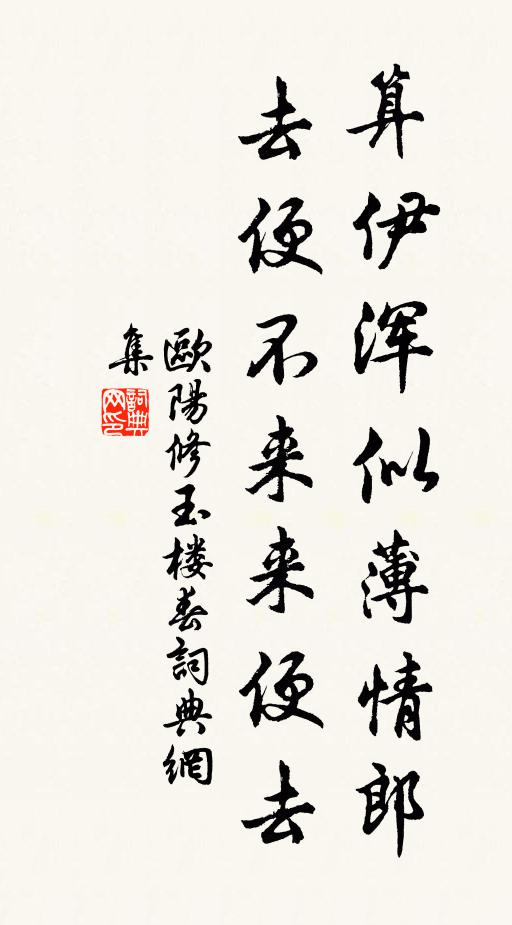 算伊浑似薄情郎
去便不来来便去
歐陽修玉楼春詞典網
集
詞典网印